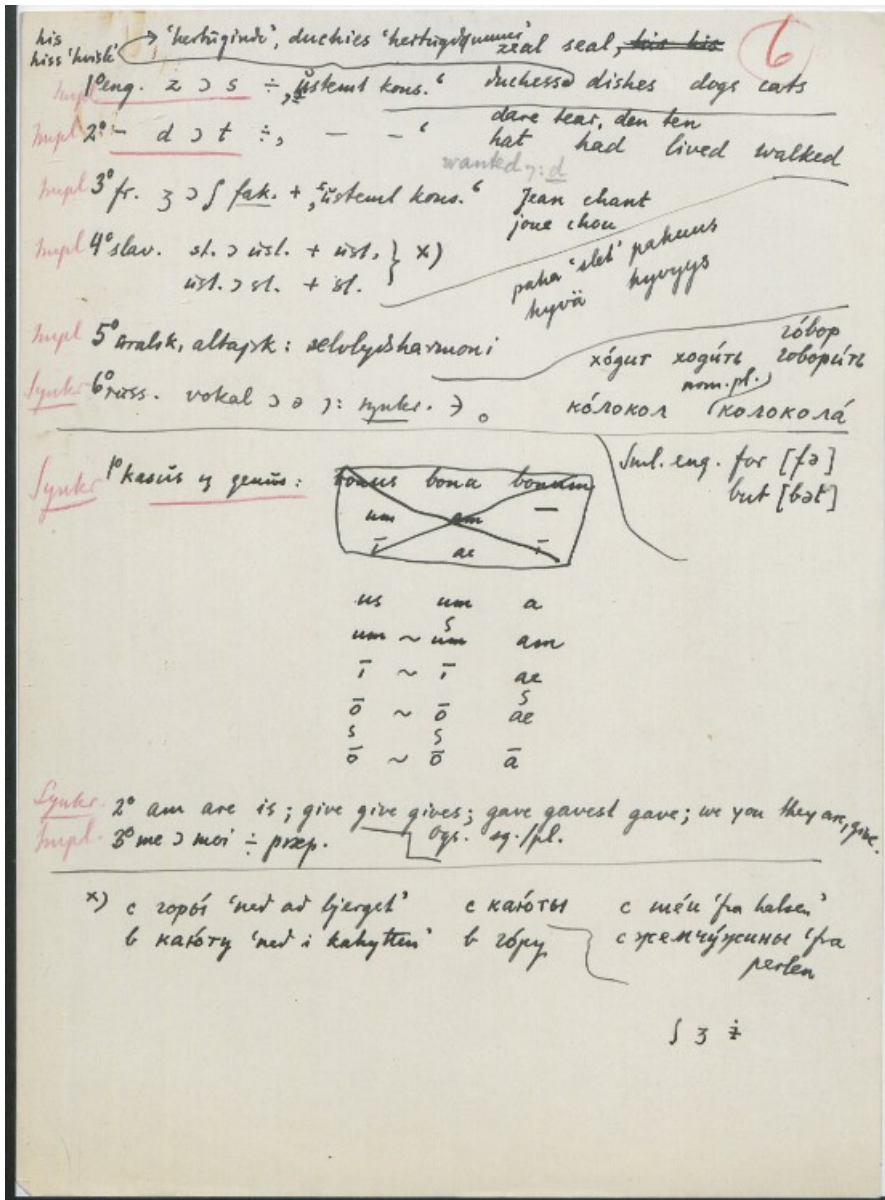 his → 'hertuginde', duchies 'hertugdømmers' 6
hiss 'hvisk' zeal seal, his his
Impl 1° eng. z ɔ s ÷ „ustemt kons.“ duchess dishes dogs cats
dare tear, den ten
Impl 2° – d ɔ t ÷ „ — — “ hat had lived walked
wanted ɔ: d
Impl 3° fr. ʒ ɔ ʃ fak. + „ustemt kons.“ Jean chant
joue chou
Impl 4° slav. st. ɔ ust. + ust. } x)
ust. ɔ st. + st.
paha 'slet' pahuus
hyvä hyvyys
Impl 5° uralsk, altajsk: selvlydsharmoni
гóвор
хóдит ходи́ть говори́ть
nom. pl.
Synkr 6° russ. vokal ɔ ə ɔ: synkr. э. кóлокол колоколá
Sml. eng. for [fə]
but [bət]
Synkr 1° kasus og genus: bonus bona bonum
um am —
ī ae ī
us um a
um ~ um am
ī ~ ī ae
ō ~ ō ae
ō ~ ō ā
Synkr. 2° am are is; give give gives; gave gavest gave; we you they are, give.
Ogs. sg./pl.
Impl. 3° me ɔ moi ÷ præp.
x) с горы́ 'ned ad bjerget' с каю́ты с ше́и 'fra halsen'
в каю́ту 'ned i kahytten' в го́ру с жемчу́жины 'fra
perlen
ʃ ʒ